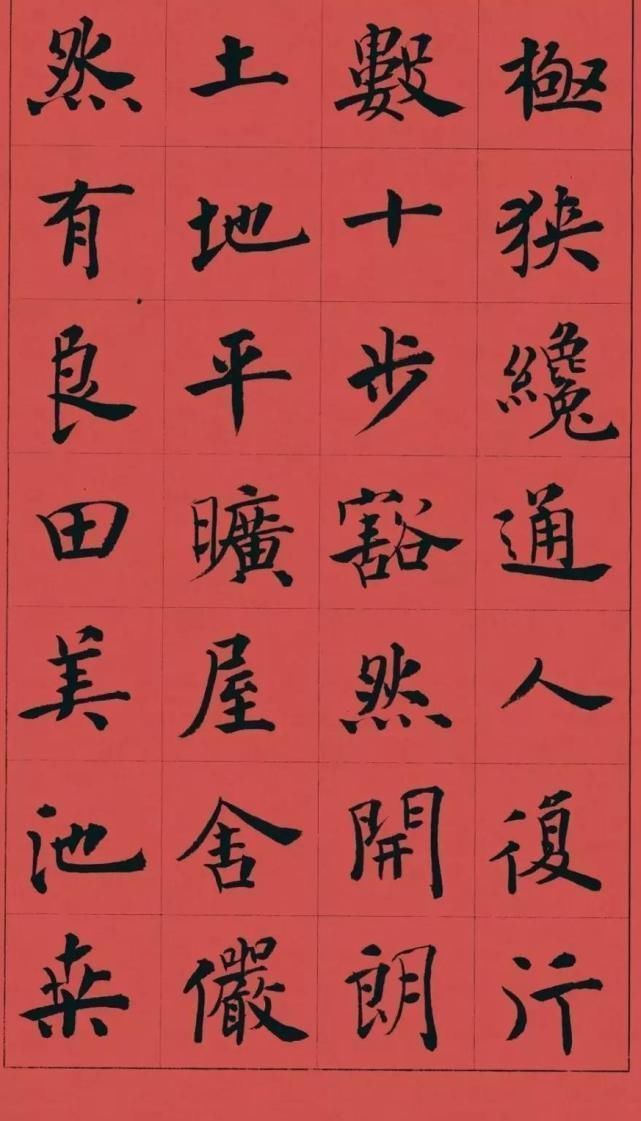 極狹纔通人復行
數十步豁然開朗
土地平曠屋舍儼
然有良田美池桑